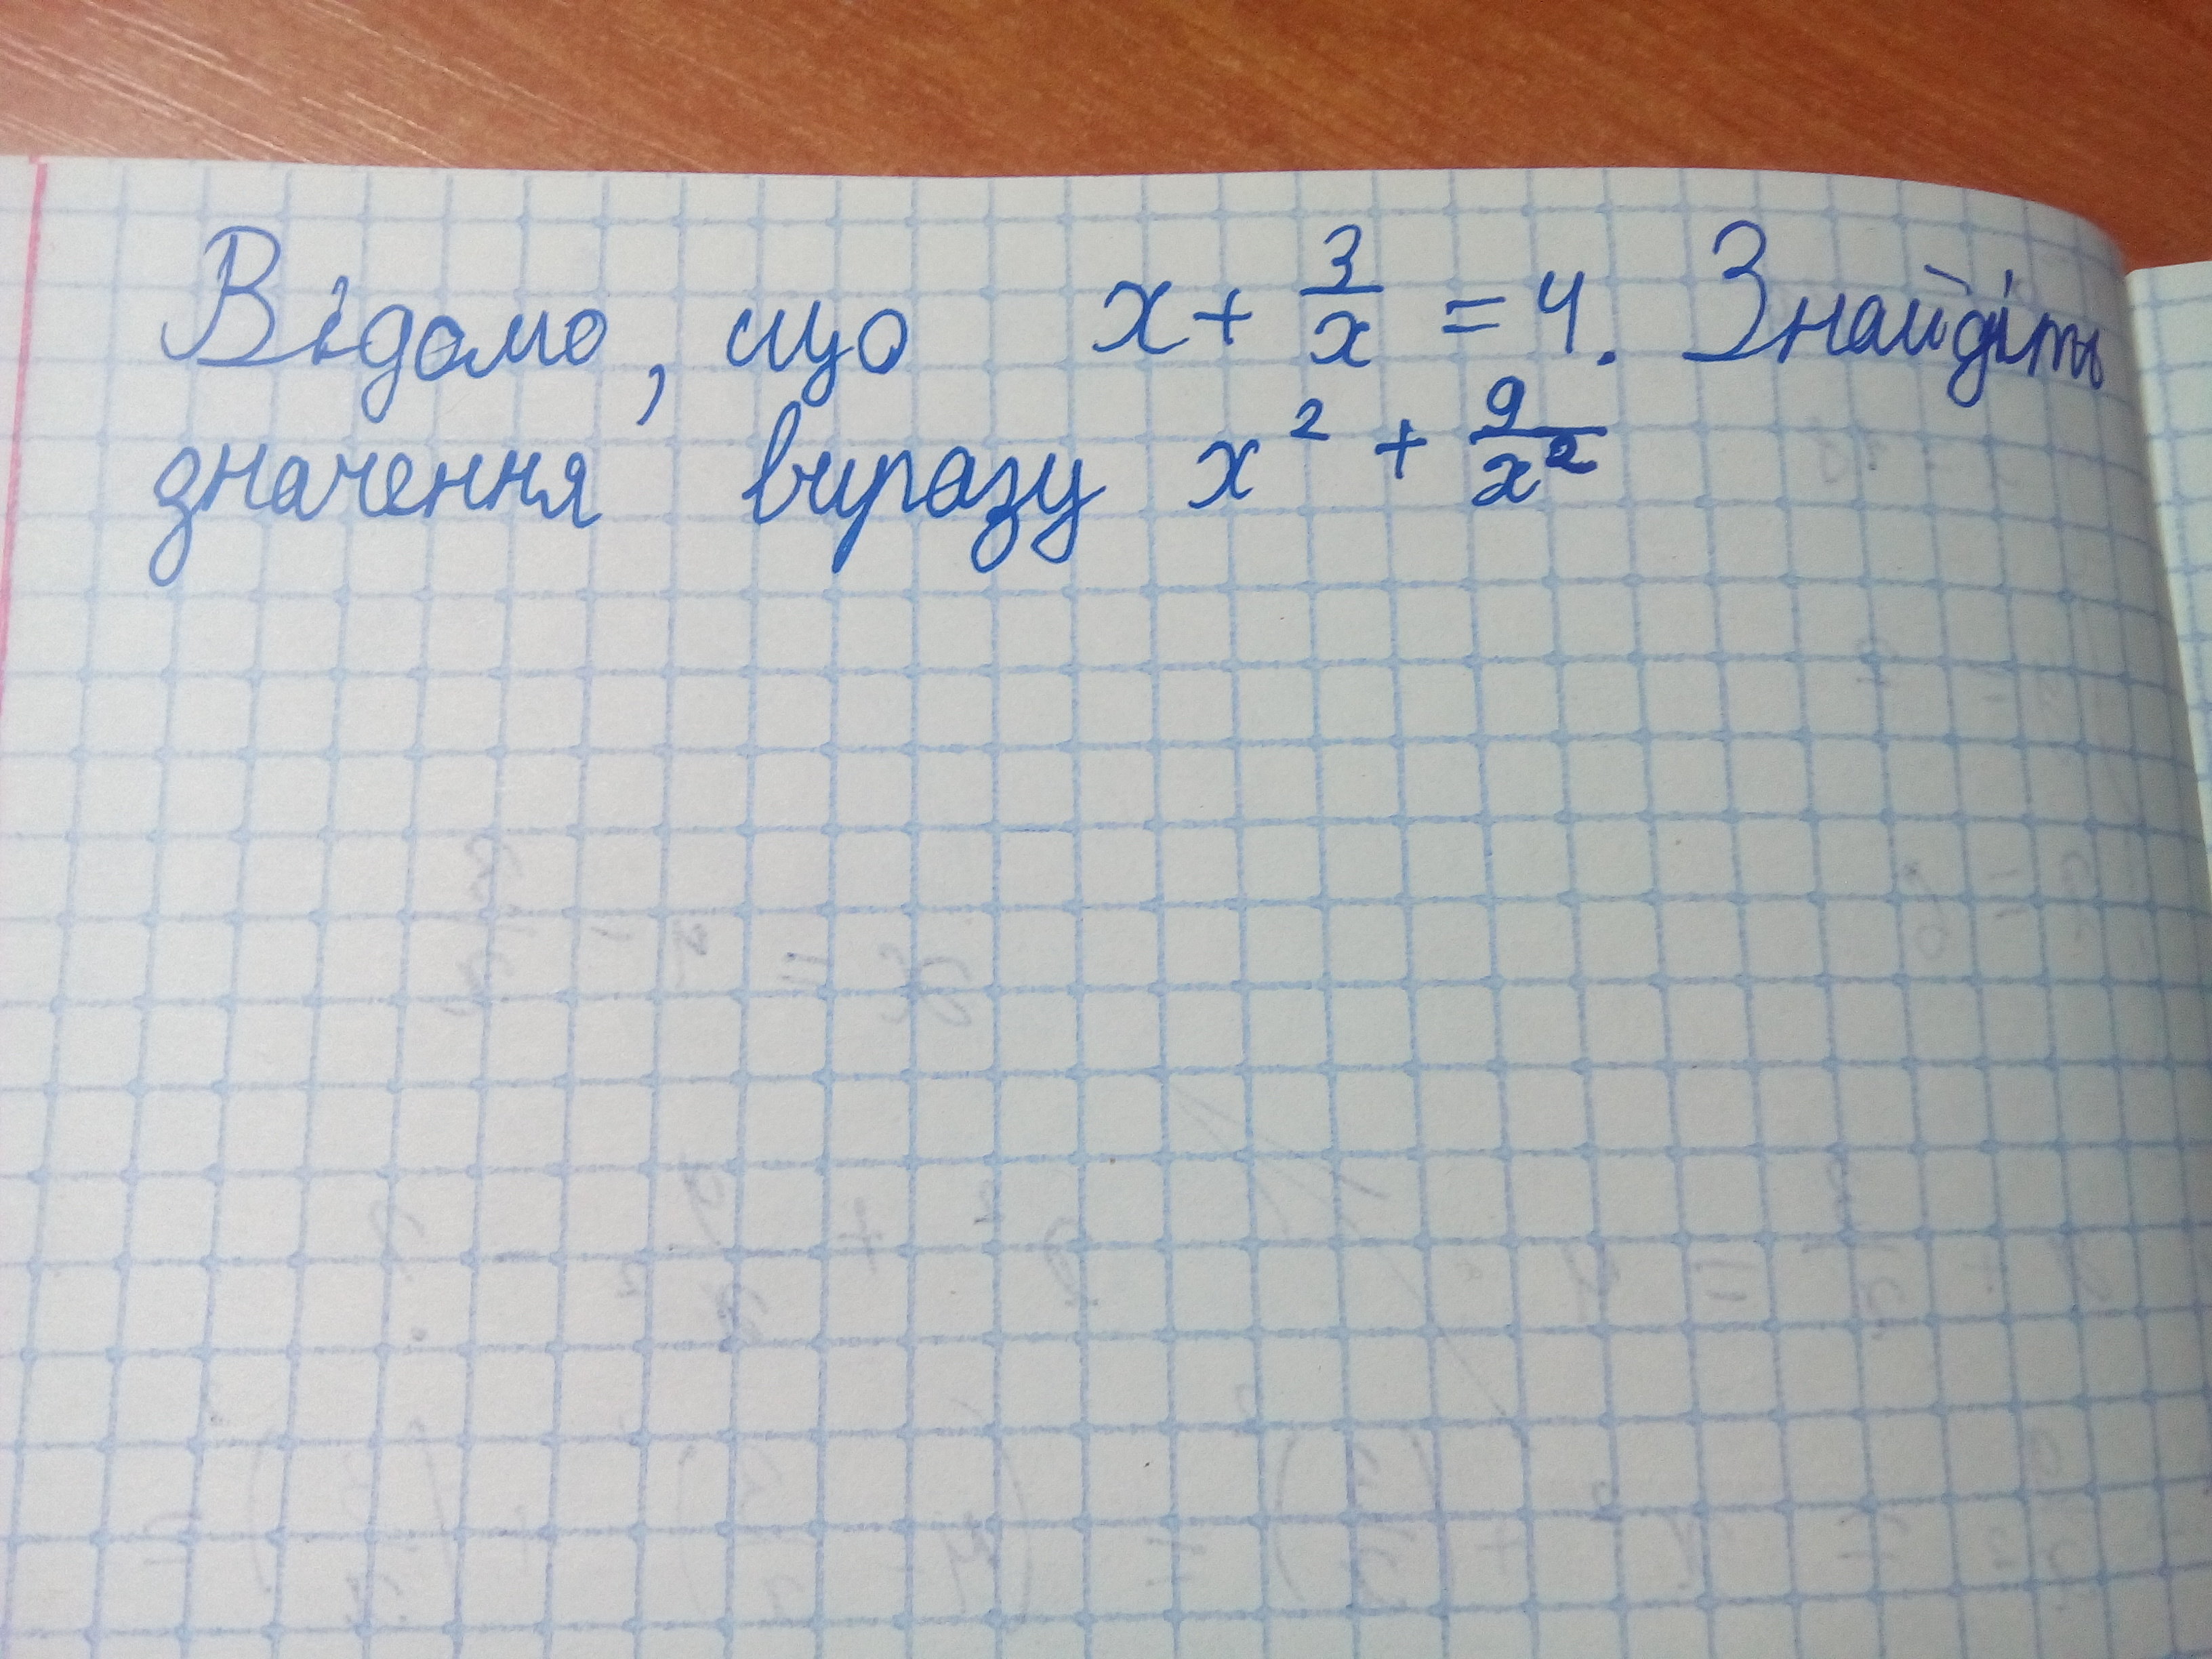 Відомо, що x + 3/x = 4. Знайдіть
значення виразу x² + 9/x²